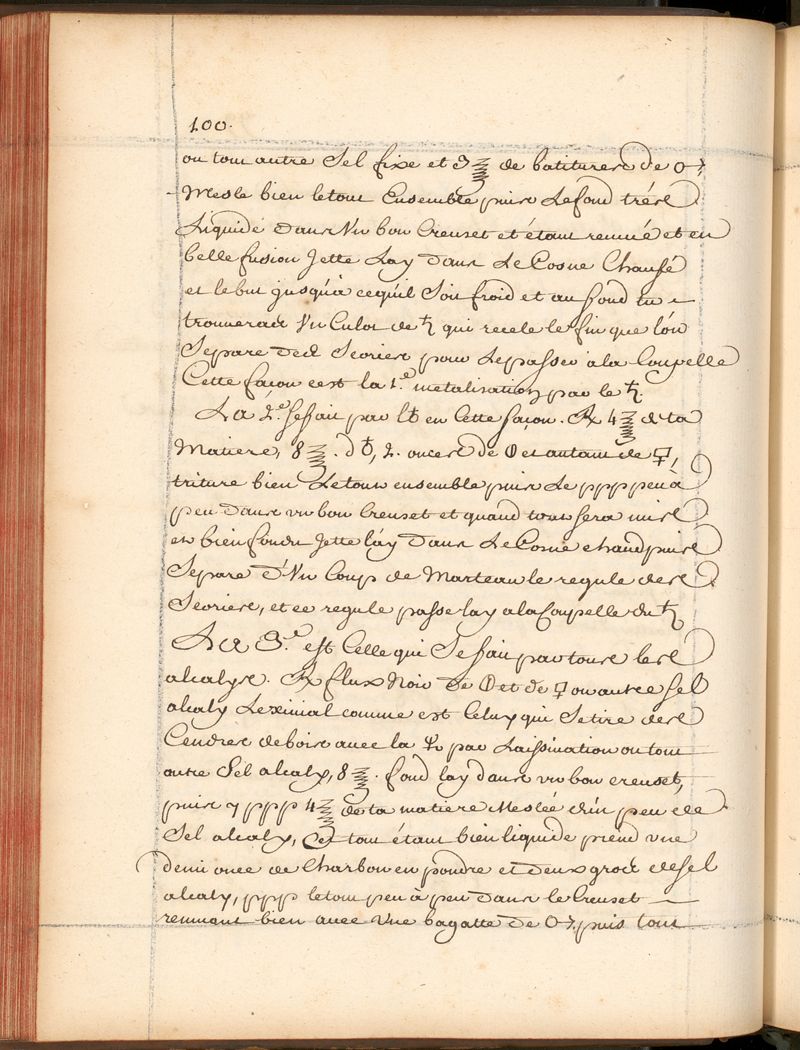 100.
ou tout autre Sel fixe et 3 ℥ de batitures de ♂
Mesle bien letout Ensemble puis Lefond trés
Liquide dans Vn bon Creuset et étant remué et en
belle fusion Jette Lay dans Le Cosne Chaufé
et lebut jusqu'à cequil Soit froid et au fond tu
trouueras Vn Culot de ♄ qui recele le fin que l'on
Separe des Scories pour Lepasser à la Coupelle
Cette façon est la 1.e metalisation par le ♄.
La 2.e Sefait par l♁ en Cette façon. ℞ 4 ℥ de ta
Matiere, 8 ℥. d♁, 2. onces de et autant de ,
triture bien Letout ensemble puis Le ppp peu à
peu dans vn bon Creuset et quand tout Sera mis
et bien fondu Jette láy dans Le Cosne chaud puis
Separe d'Vn Coup de Marteau le regule des
Scories, et ce regule passe lay a la Coupelle du ♄
La 3.e est Celle qui Se fait par tous les
alcalys. ℞ flux Noir de et de ou autre sel
alcaly Lexiuial comme est Celuy qui Setire des
Cendres debois auec la par Laissination ou tout
autre Sel alcaly, 8 ℥. fond lay dans vn bon creuset,
puis y ppp 4 ℥ de ta matiere Meslée d'un peu de
Sel alcaly, et tout étant bien liquide prend vne
demi once de Charbon en poudre et deux gros desel
alcaly, ppp letout peu à peu dans le Creuset
remuant bien auec Vne bagatte de ♂, puis tout